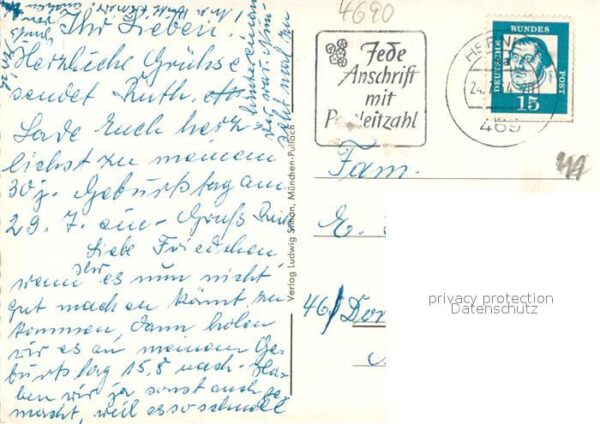 Ihr Lieben!
Herzliche Grüße
sendet Ruth.
Lade Euch herz
lichst zu meinem
30j. Geburtstag am
29. 7. ein - Gruß Ruth
Liebe Friedchen
wenn Ihr es nun nicht
gut machen könnt zu
kommen, dann holen
wir es an meinem Ge-
burtstag 15.8 nach. Ha-
ben wir ja sonst auch ge
macht, weil es so schnell
hintereinan
der war.
Verlag Ludwig Simon, München-Pullach
4690
Jede
Anschrift
mit
Postleitzahl
HERNE
24.
469
DEUTSCHE
BUNDES
POST
15
44
Fam.
E.
46/ Dor
privacy protection
Datenschutz